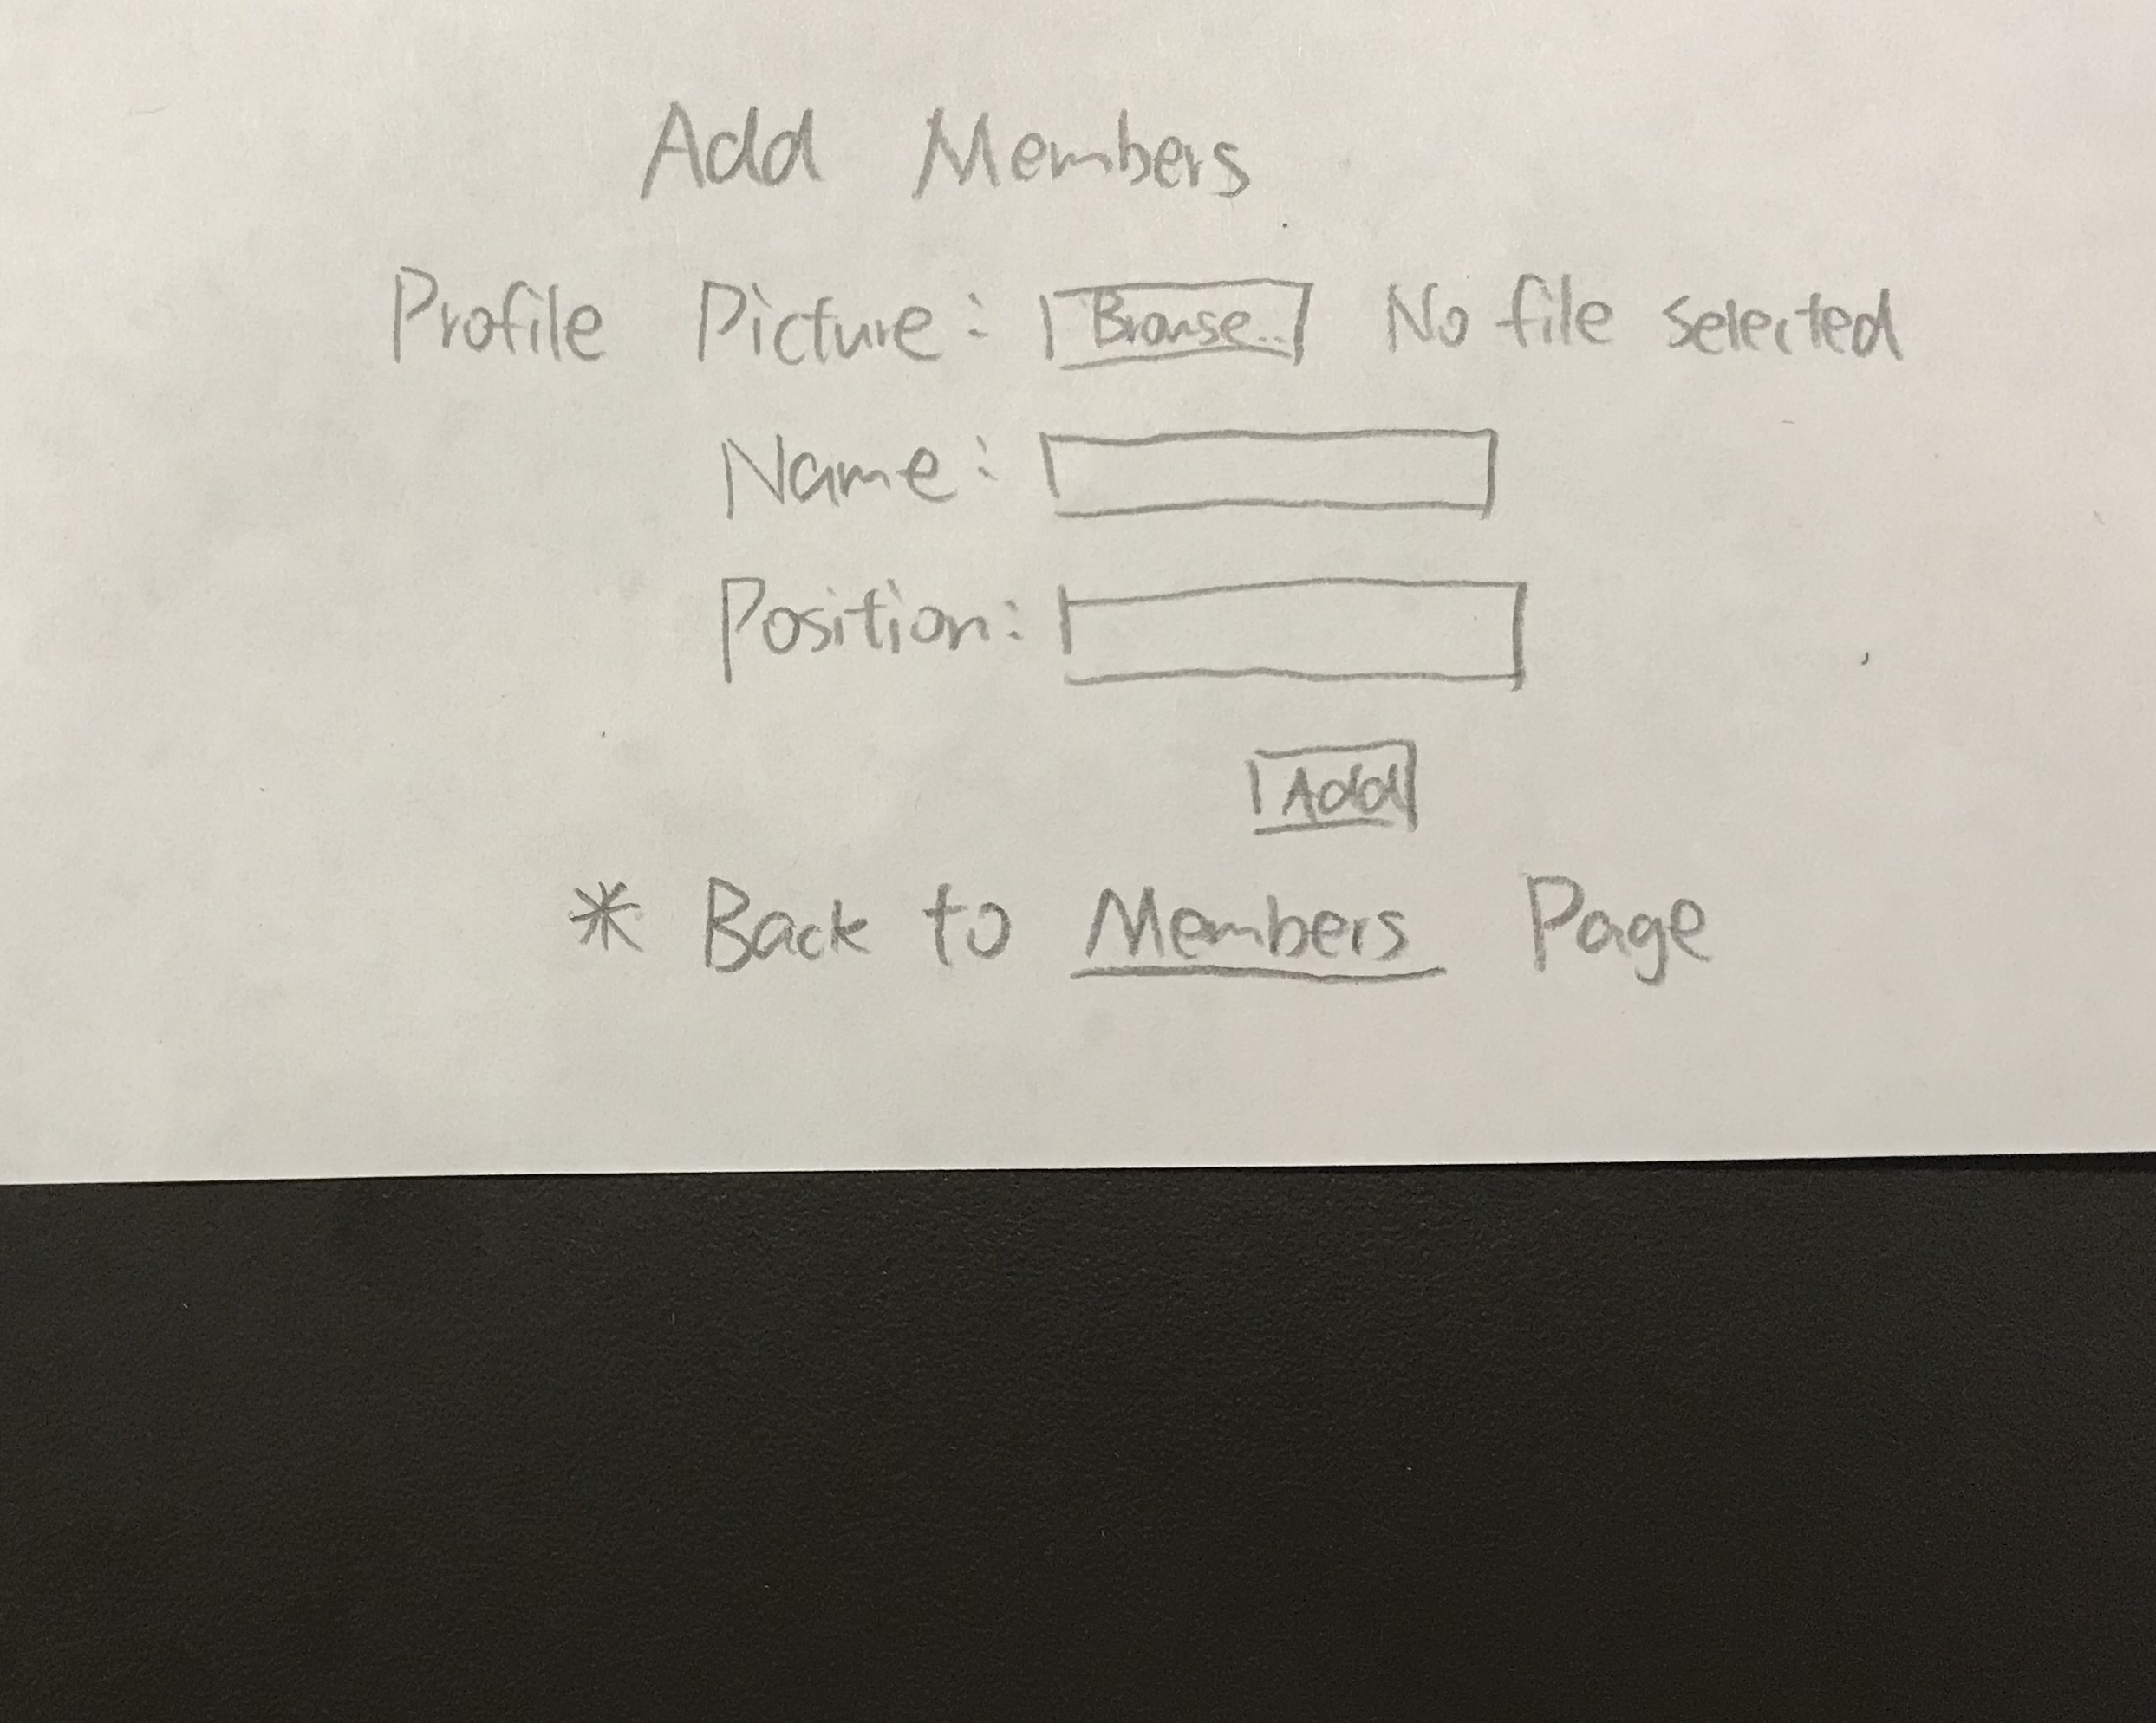 Add Members
Profile Picture: Browse.. No file selected
Name:
Position:
Add
* Back to Members Page